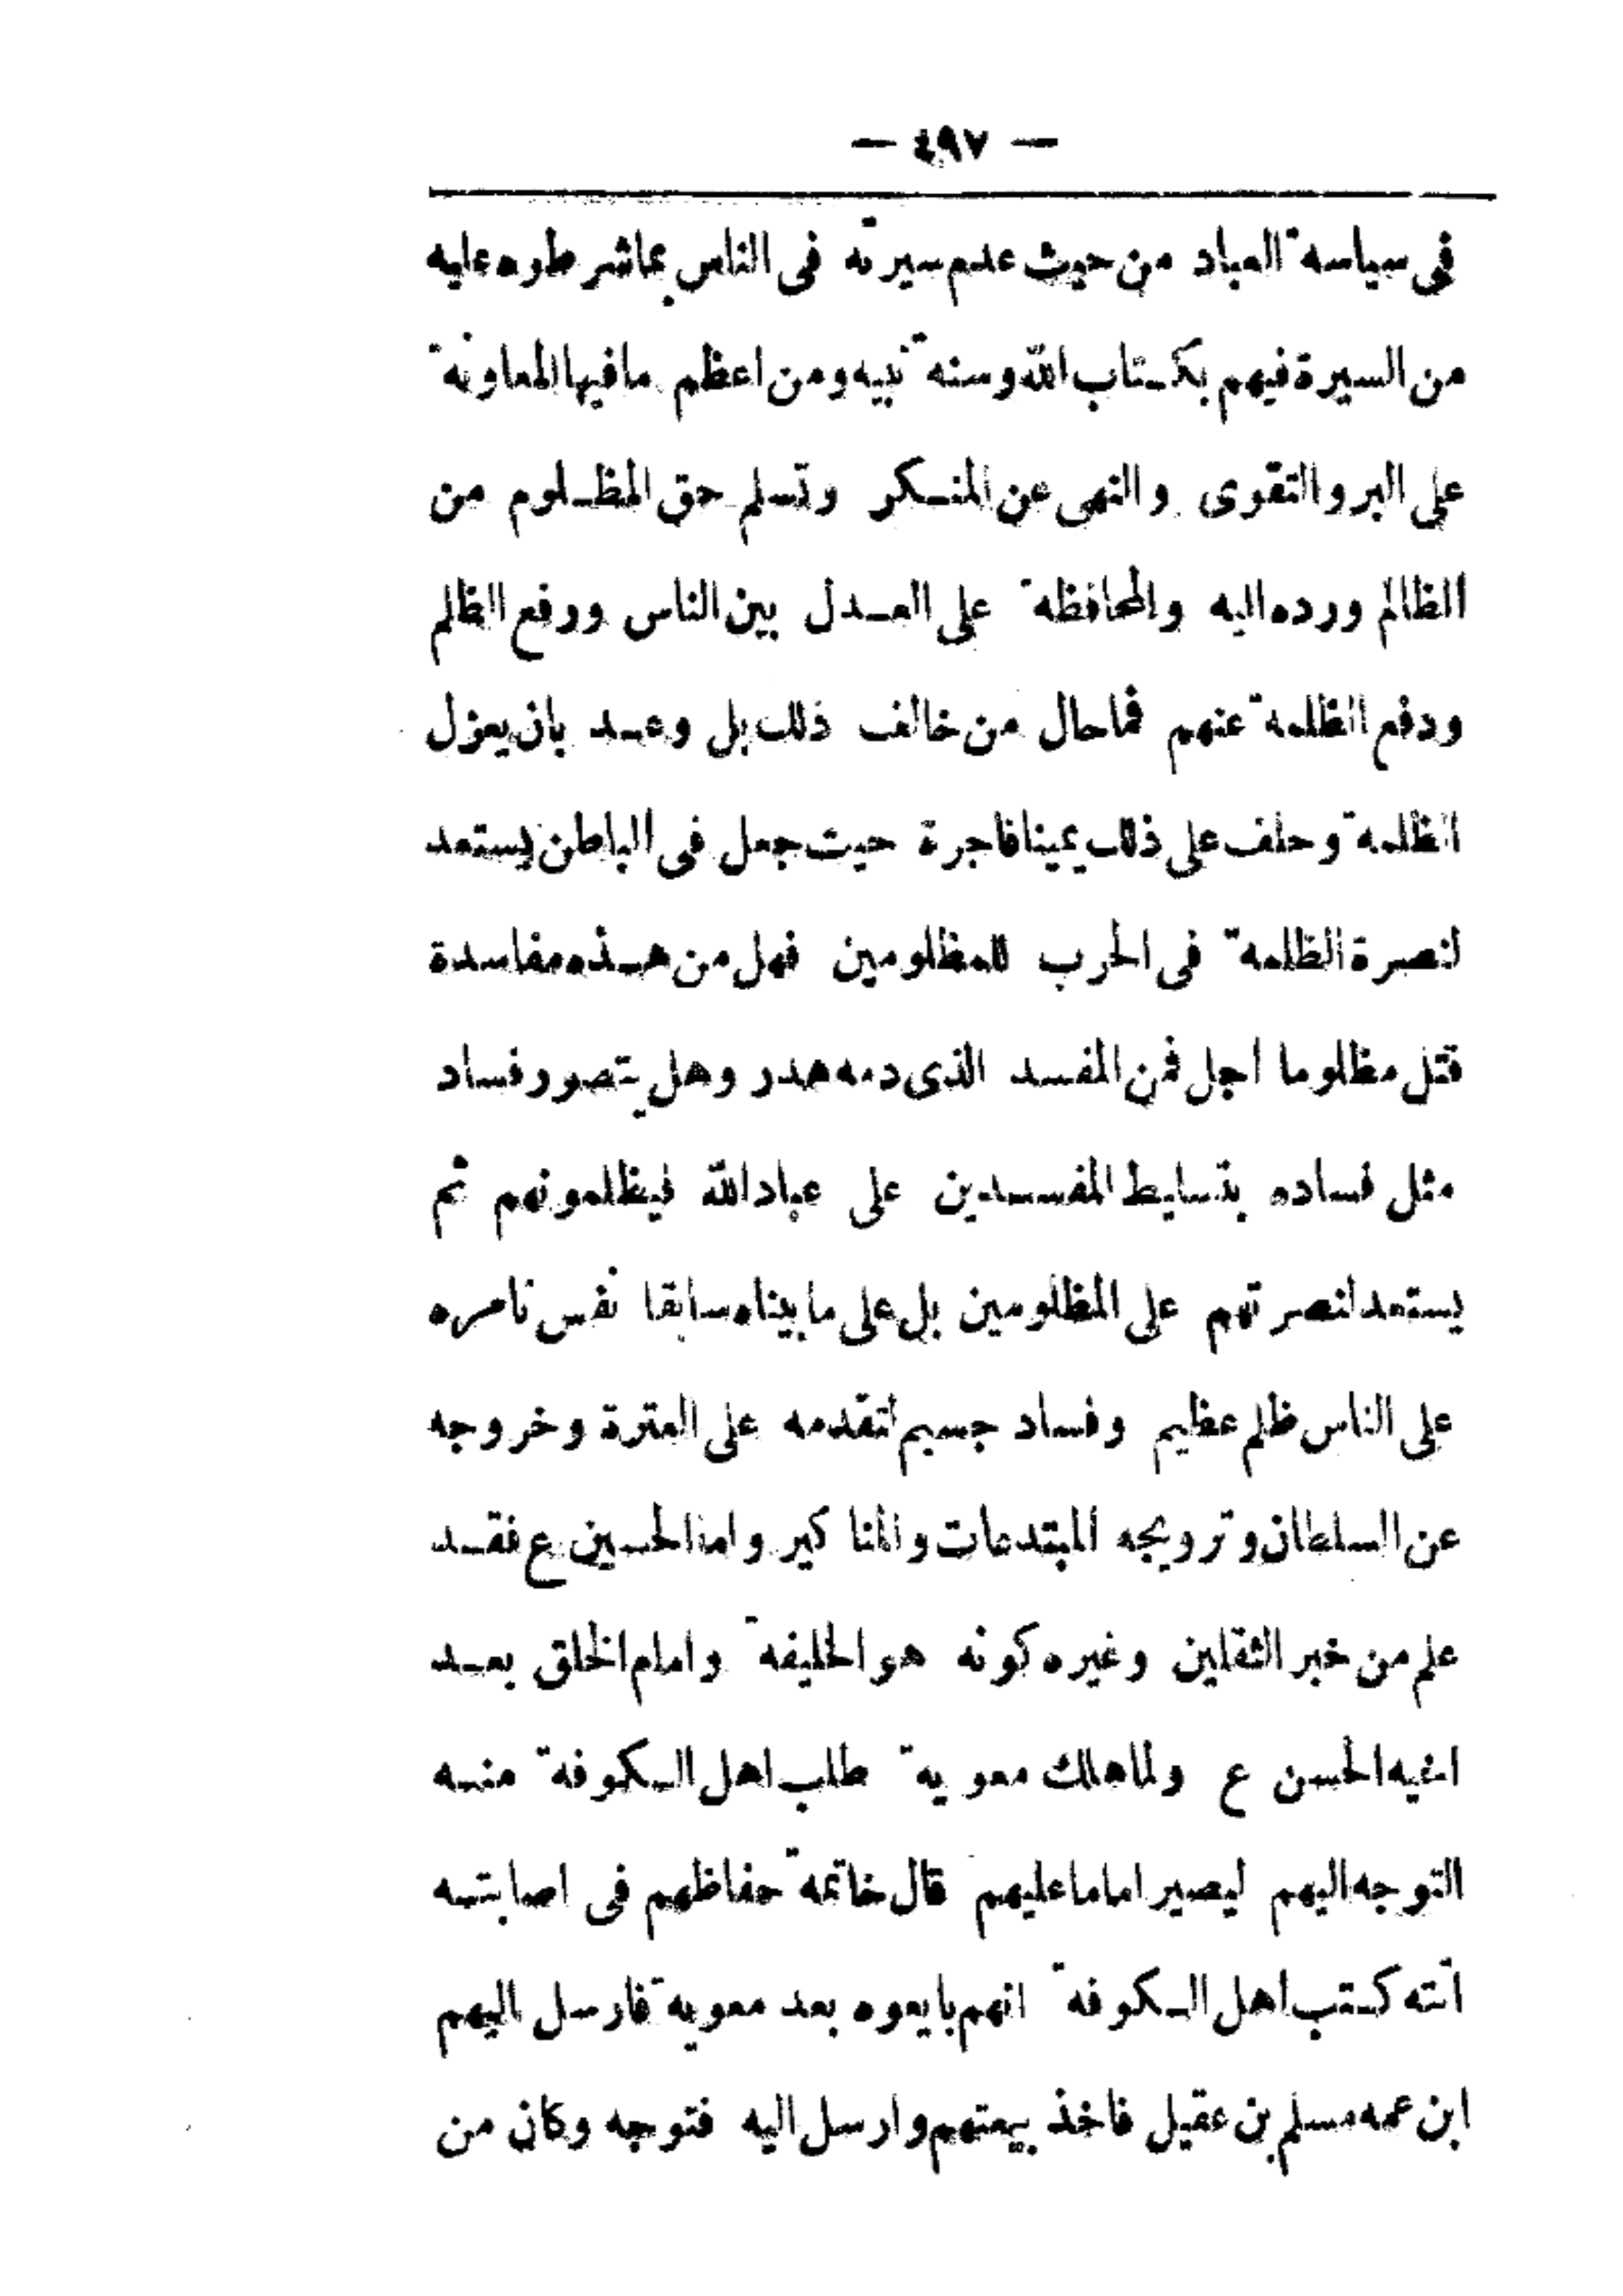 — ٤٩٧ —
فى سياسة العباد من حيث عدم سيرته فى الناس بماشرطوه عليه
من السيرة فيهم بكتاب الله وسنة نبيه ومن اعظم مافيها المعاونة
على البر والتقوى والنهى عن المنكر وتسلم حق المظلوم من
الظالم ورده اليه والمحافظة على العدل بين الناس ورفع الظلم
ودفع الظلمة عنهم فماحال من خالف ذلك بل وعد بان يعزل
الظلمة وحلف على ذلك يمينا فاجرة حيث جعل فى الباطن يستعد
لنصرة الظلمة فى الحرب للمظلومين فهل من هذه مفاسدة
قتل مظلوما اجل فمن المفسد الذى دمه هدر وهل يتصور فساد
مثل فساده بتسليط المفسدين على عباد الله فيظلمونهم ثم
يستعد لنصرتهم على المظلومين بل على مابيناه سابقا نفس تامره
على الناس ظلم عظيم وفساد جسيم لتقدمه على العترة وخروجه
عن السلطان وترويجه المبتدعات والمناكير واما الحسين ع فقد
علم من خبر الثقلين وغيره كونه هو الخليفة وامام الخلق بعد
اخيه الحسن ع ولما هلك معوية طلب اهل الكوفة منه
التوجه اليهم ليصير اماما عليهم قال خاتمة حفاظهم فى اصابته
اتته كتب اهل الكوفة انهم بايعوه بعد معوية فارسل اليهم
ابن عمه مسلم بن عقيل فاخذ بيعتهم وارسل اليه فتوجه وكان من